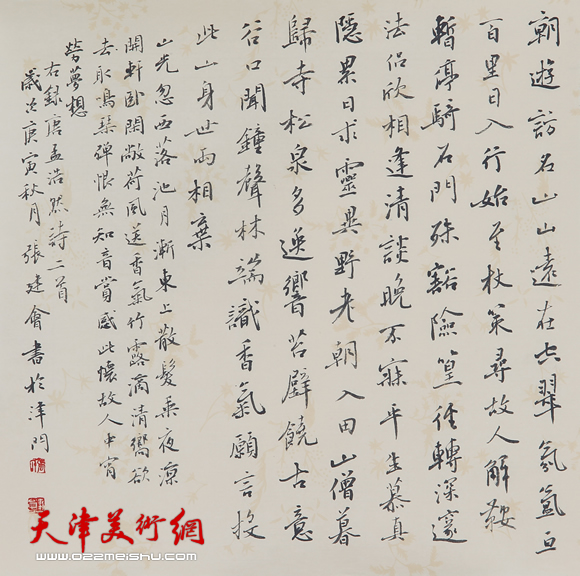 朝遊訪名山山遠在空翠氛氲亘
百里日入行始至杖策尋故人解鞍
暫停騎石門殊豁險篁徑轉深邃
法侣欣相逢清談晚不寐平生慕真
隱累日求靈異野老朝入田山僧暮
歸寺松泉多逸響苔壁饒古意
谷口聞鐘聲林端識香氣願言投
此山身世兩相棄
山光忽西落池月漸東上散髮乘夜凉
開軒卧閑敞荷風送香氣竹露滴清響欲
去取鳴琴彈恨無知音賞感此懷故人中宵
勞夢想
右錄唐孟浩然詩二首
歲次庚寅秋月張建會書於津門
天津美術網
www.022meishu.com